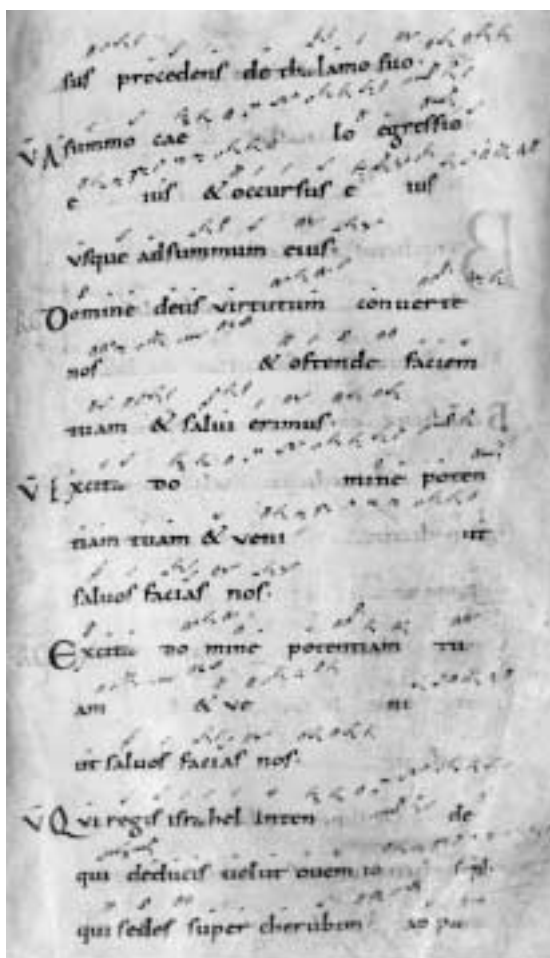 sus procedens de thalamo suo.
V A summo cae lo egressio
e ius & occursus e ius
vsque adsummum eius.
Domine deus virtutum conuerte
nos & ostende faciem
tuam & salui erimus.
V Excita do mine poten
tiam tuam & veni ut
saluos facias nos.
Excita do mine potentiam tu
am & ve ni
ut saluos facias nos.
V Qvi regis israhel inten de
qui deducis uelut ouem io
qui sedes super cherubim